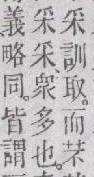 采訓取。而芣
采采、衆多也。
義略同。皆謂